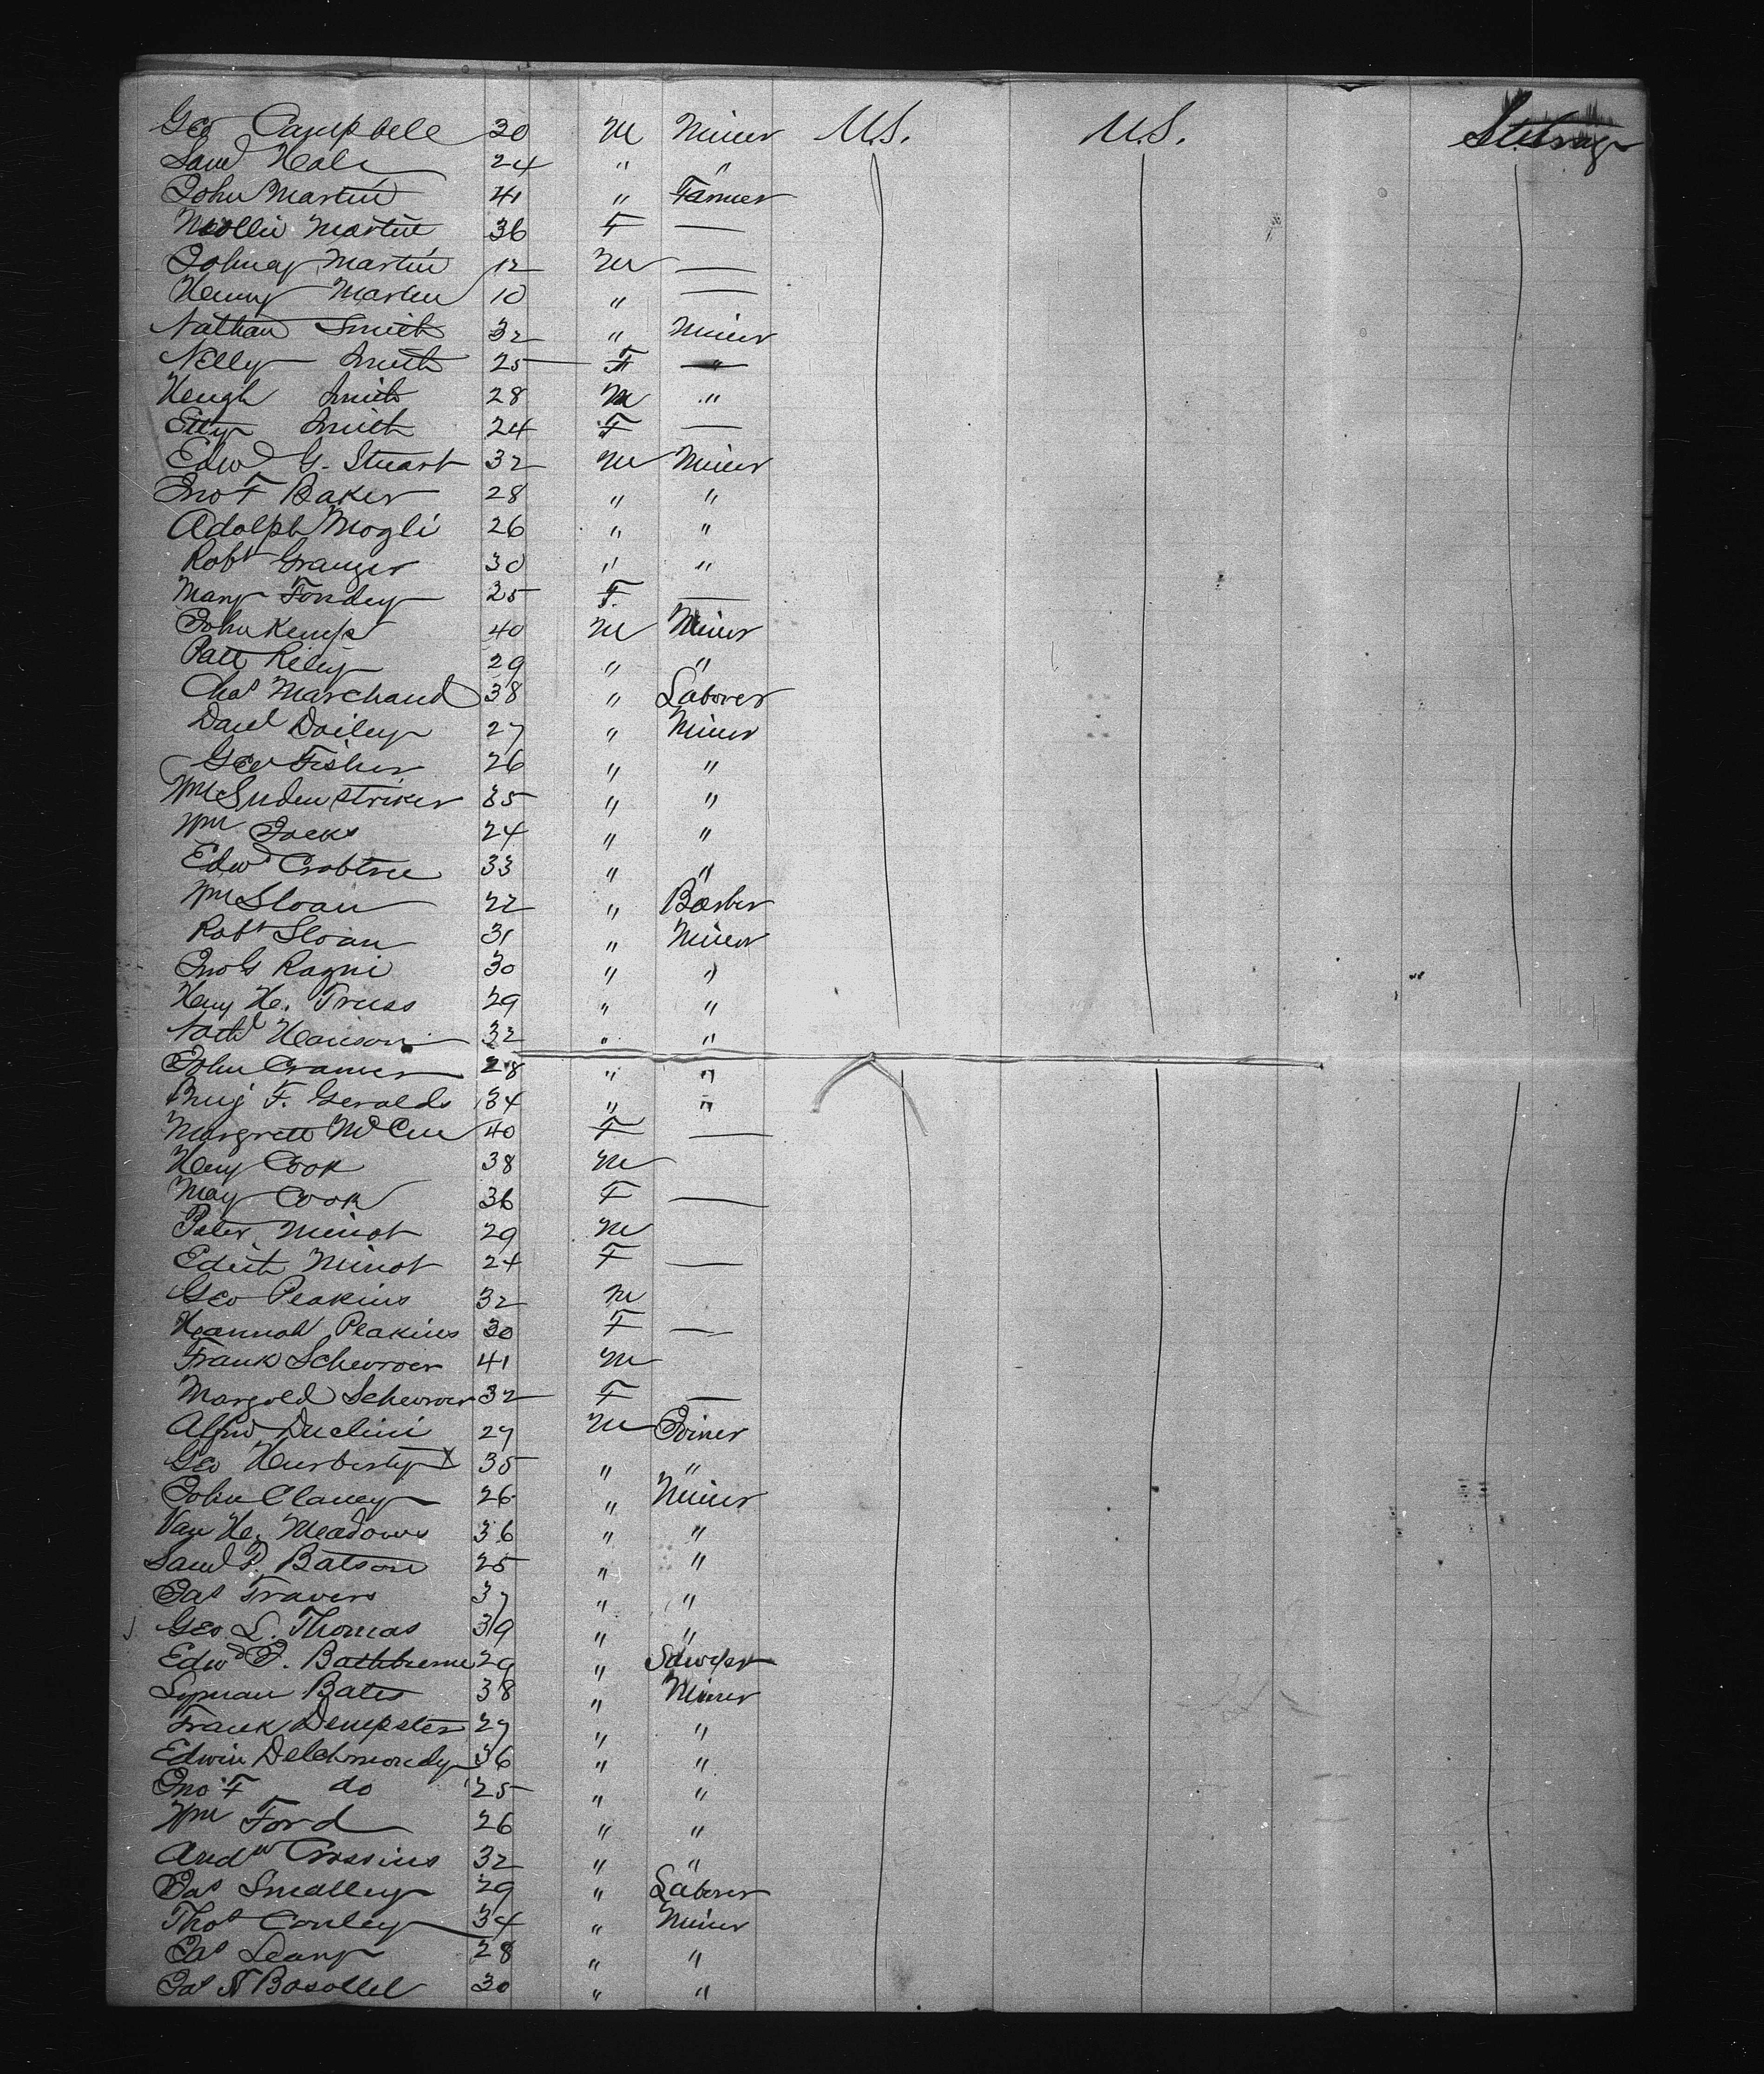 Geo Campbell 30 M Miner U.S. U.S. Steerage
Saml Hale 24 " "
John Martin 41 " Farmer
Mollie Martin 36 F —
Johney Martin 12 M —
Henry Martin 10 " —
Nathan Smith 32 " Miner
Nelly Smith 25 F —
Heugh Smith 28 M "
Smith 24 F —
Edwd G. Stuart 32 M Miner
Jno F Baker 28 " "
Adolph Mogli 26 " "
Robt Granger 30 " "
Mary Fondey 25 F. —
John Kemp 40 M Miner
Patt Riley 29 " "
Chas Marchand 38 " Laborer
Danl Dailey 27 " Miner
Geo Fisher 26 " "
Wm Sudenstriker 35 " "
Wm Jacks 24 " "
Edwd Crabtree 33 " "
Wm Sloan 22 " Barber
Robt Sloan 31 " Miner
Jno G Ragni 30 " "
Heny H. Truss 29 " "
Nathl Hanson 32 " "
John Cramer 28 " "
Benj F. Geralds 34 " "
Margrett McCue 40 F —
Heny Cook 38 M
May Cook 36 F —
Peter Minot 29 M
Edith Minot 24 F —
Geo Peakins 32 M
Hannah Peakins 30 F —
Frank Schevroer 41 M
Margold Schevroer 32 F —
Alfrd Duclini 27 M Joiner
Geo 35 " "
John Clancy 26 " Miner
Van H. Meadows 36 " "
Saml P. Batson 25 " "
Jas Travers 37 " "
Geo. L. Thomas 39 " "
Edwd J. Bathburne 29 "
Lyman Bates 38 " Miner
Frank Dempster 27 " "
Edwin Delchmondy 36 " "
Jno F do 25 " "
Wm Ford 26 " "
Andw Crossins 32 " "
Jas Smalley 29 " Laborer
Thos Conley 34 " Miner
Jas Leany 28 " "
Jas N Bosollel 30 " "